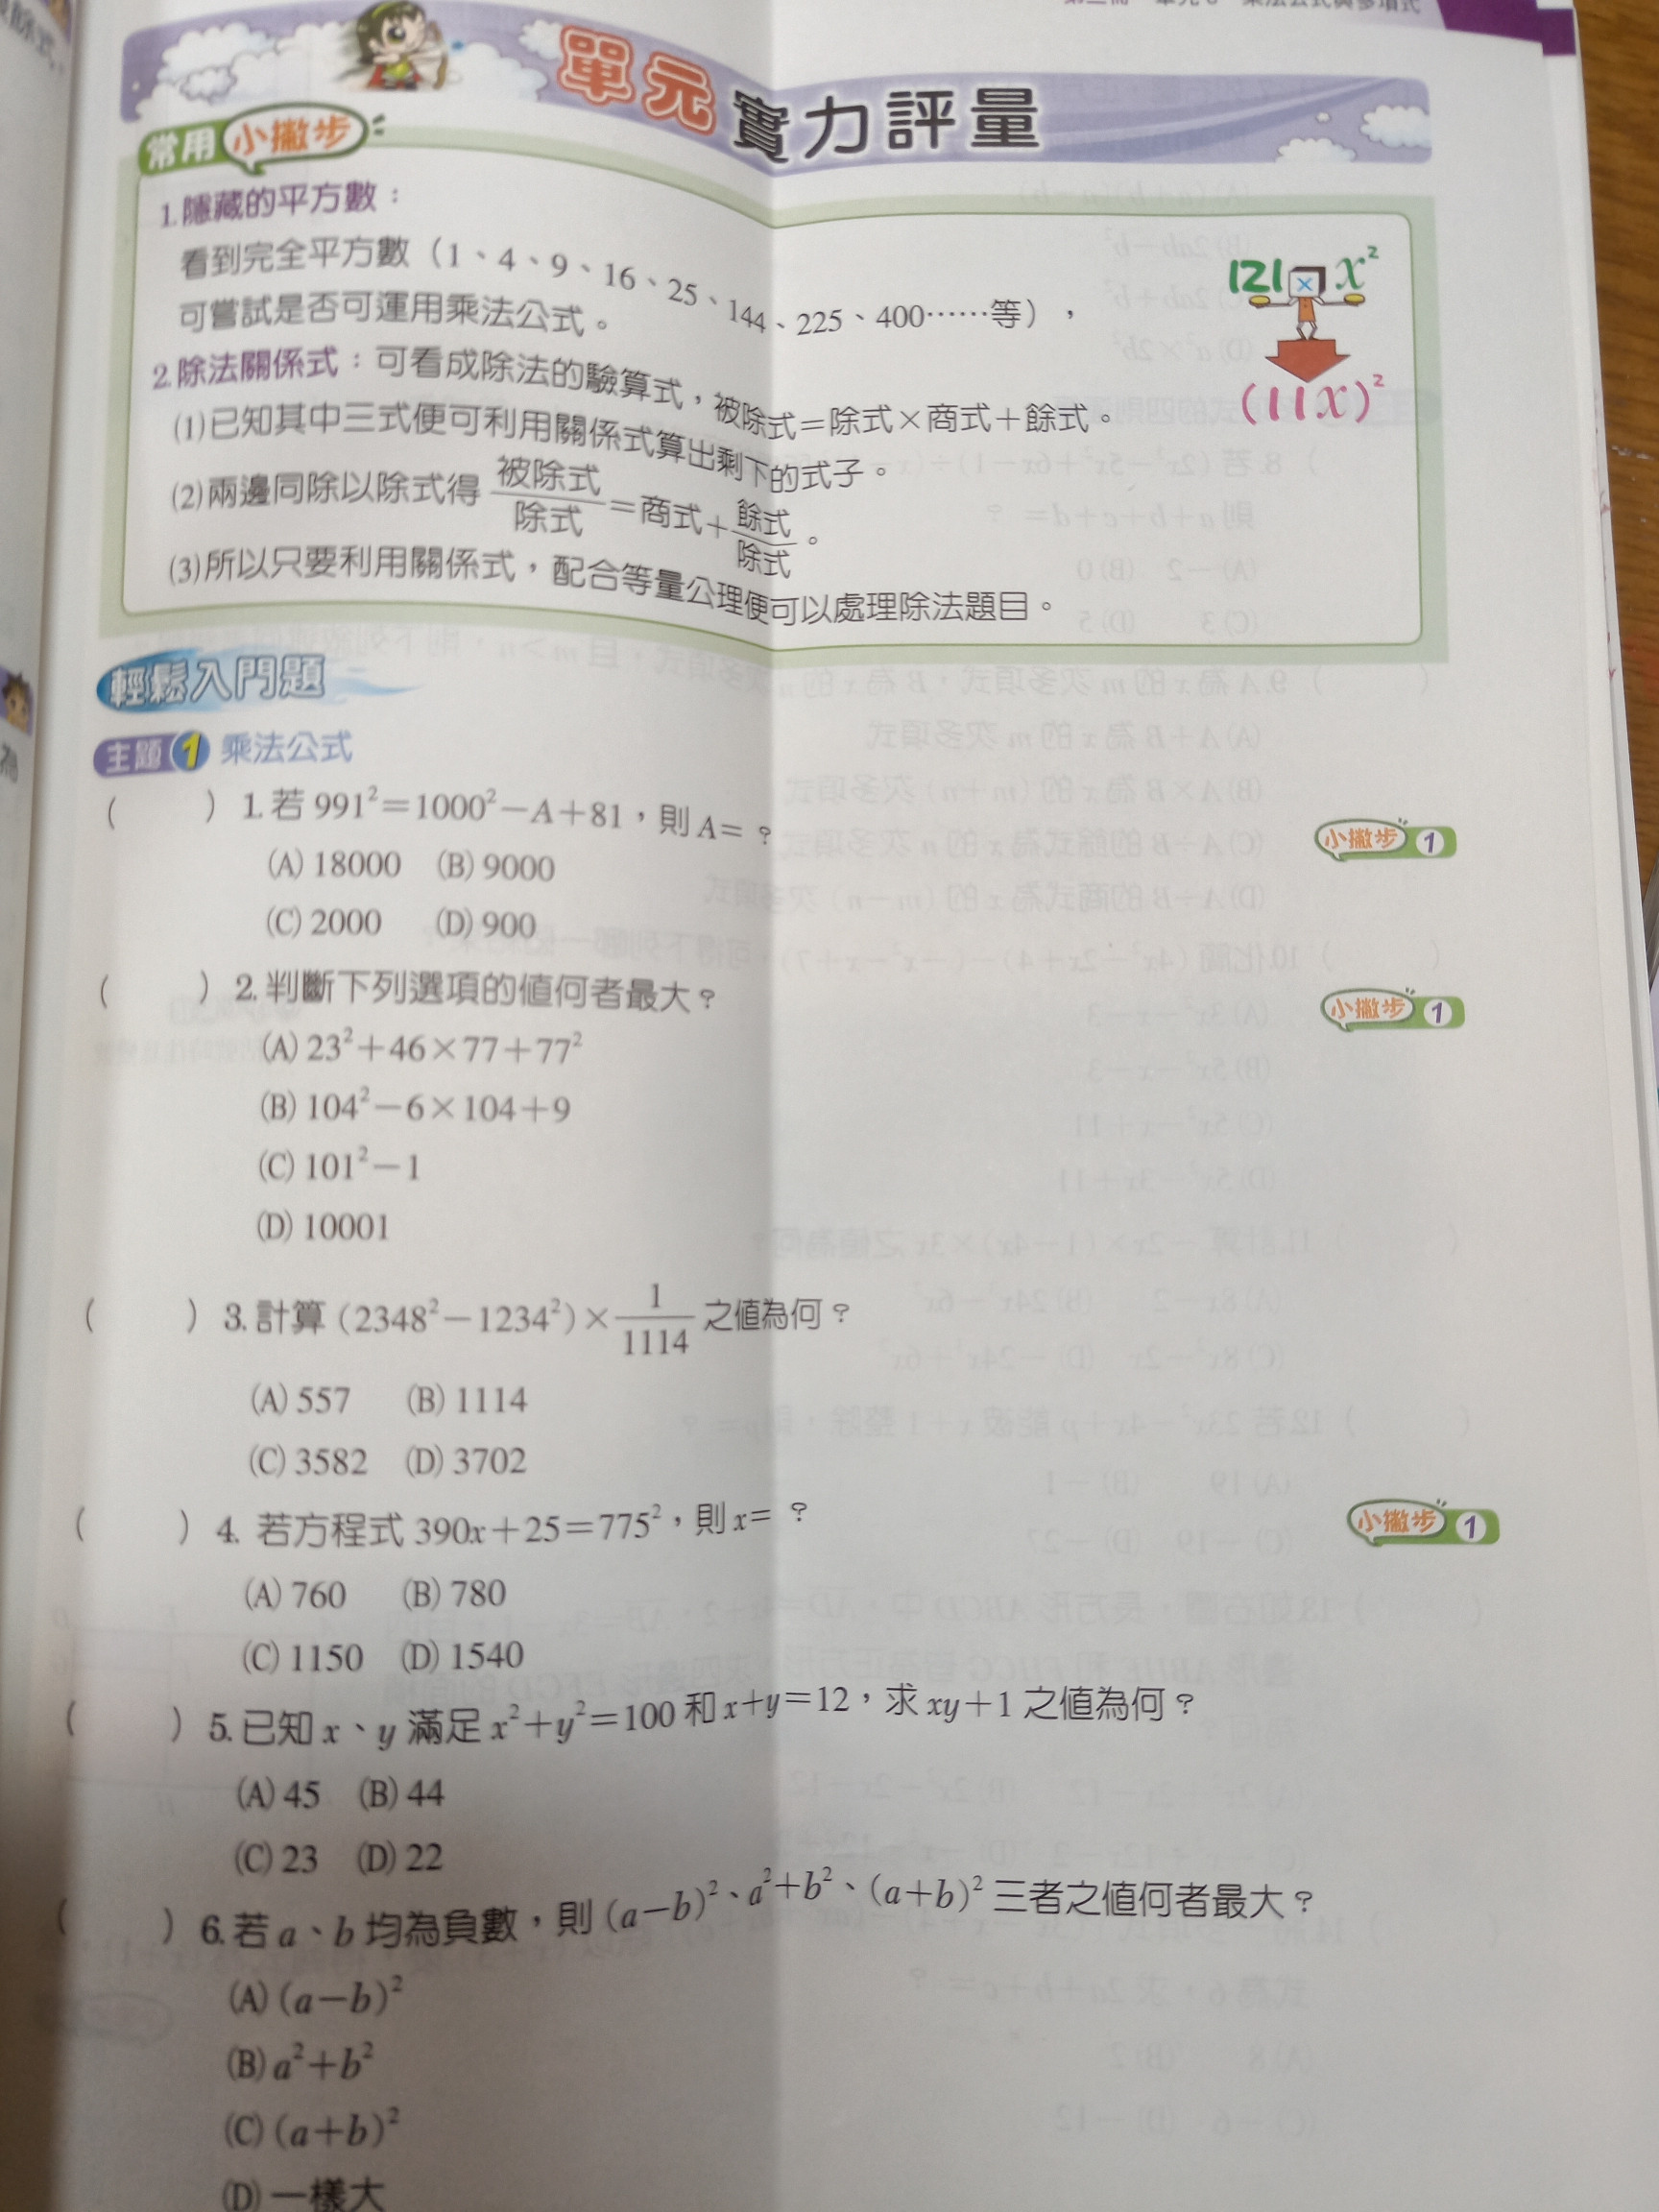 單元實力評量
常用小撇步
1.隱藏的平方數：
看到完全平方數（1、4、9、16、25、144、225、400……等），
可嘗試是否可運用乘法公式。
121 × x²
(11x)²
2.除法關係式：可看成除法的驗算式，被除式＝除式×商式＋餘式。
(1)已知其中三式便可利用關係式算出剩下的式子。
(2)兩邊同除以除式得 被除式/除式＝商式＋餘式/除式。
(3)所以只要利用關係式，配合等量公理便可以處理除法題目。
輕鬆入門題
主題1 乘法公式
（　　）1.若 991²＝1000²－A＋81，則 A＝？
小撇步 1
(A) 18000 (B) 9000
(C) 2000 (D) 900
（　　）2.判斷下列選項的值何者最大？
小撇步 1
(A) 23²＋46×77＋77²
(B) 104²－6×104＋9
(C) 101²－1
(D) 10001
（　　）3.計算（2348²－1234²）×1/1114 之值為何？
(A) 557 (B) 1114
(C) 3582 (D) 3702
（　　）4. 若方程式 390x＋25＝775²，則 x＝？
小撇步 1
(A) 760 (B) 780
(C) 1150 (D) 1540
（　　）5.已知 x、y 滿足 x²＋y²＝100 和 x＋y＝12，求 xy＋1 之值為何？
(A) 45 (B) 44
(C) 23 (D) 22
（　　）6.若 a、b 均為負數，則（a－b）²、a²＋b²、（a＋b）² 三者之值何者最大？
(A)（a－b）²
(B) a²＋b²
(C)（a＋b）²
(D) 一樣大